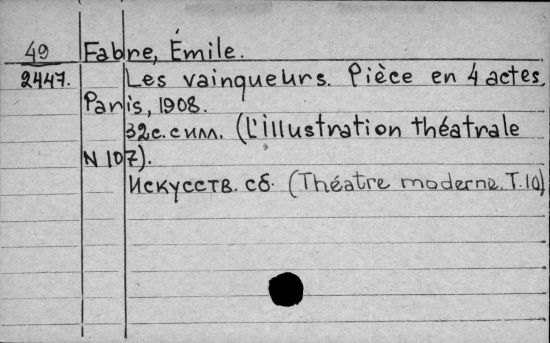 49 Fabre, Émile.
2447. Les vainqueurs. Pièce en 4 actes.
Paris, 1908.
32с. с илл. (L'illustration théatrale
N 107).
Искусств. сб. (Théatre moderne. T. 10)